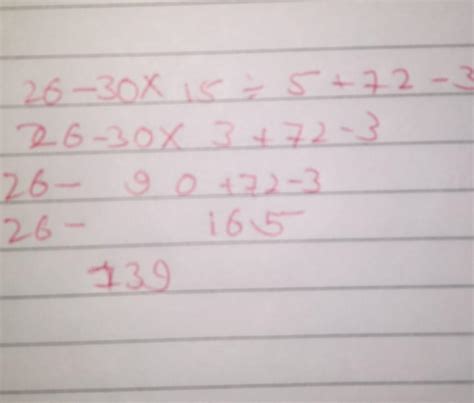 26-30× 15 ÷ 5+72-3
26-30× 3+72-3
26- 90+72-3
26- 165
139